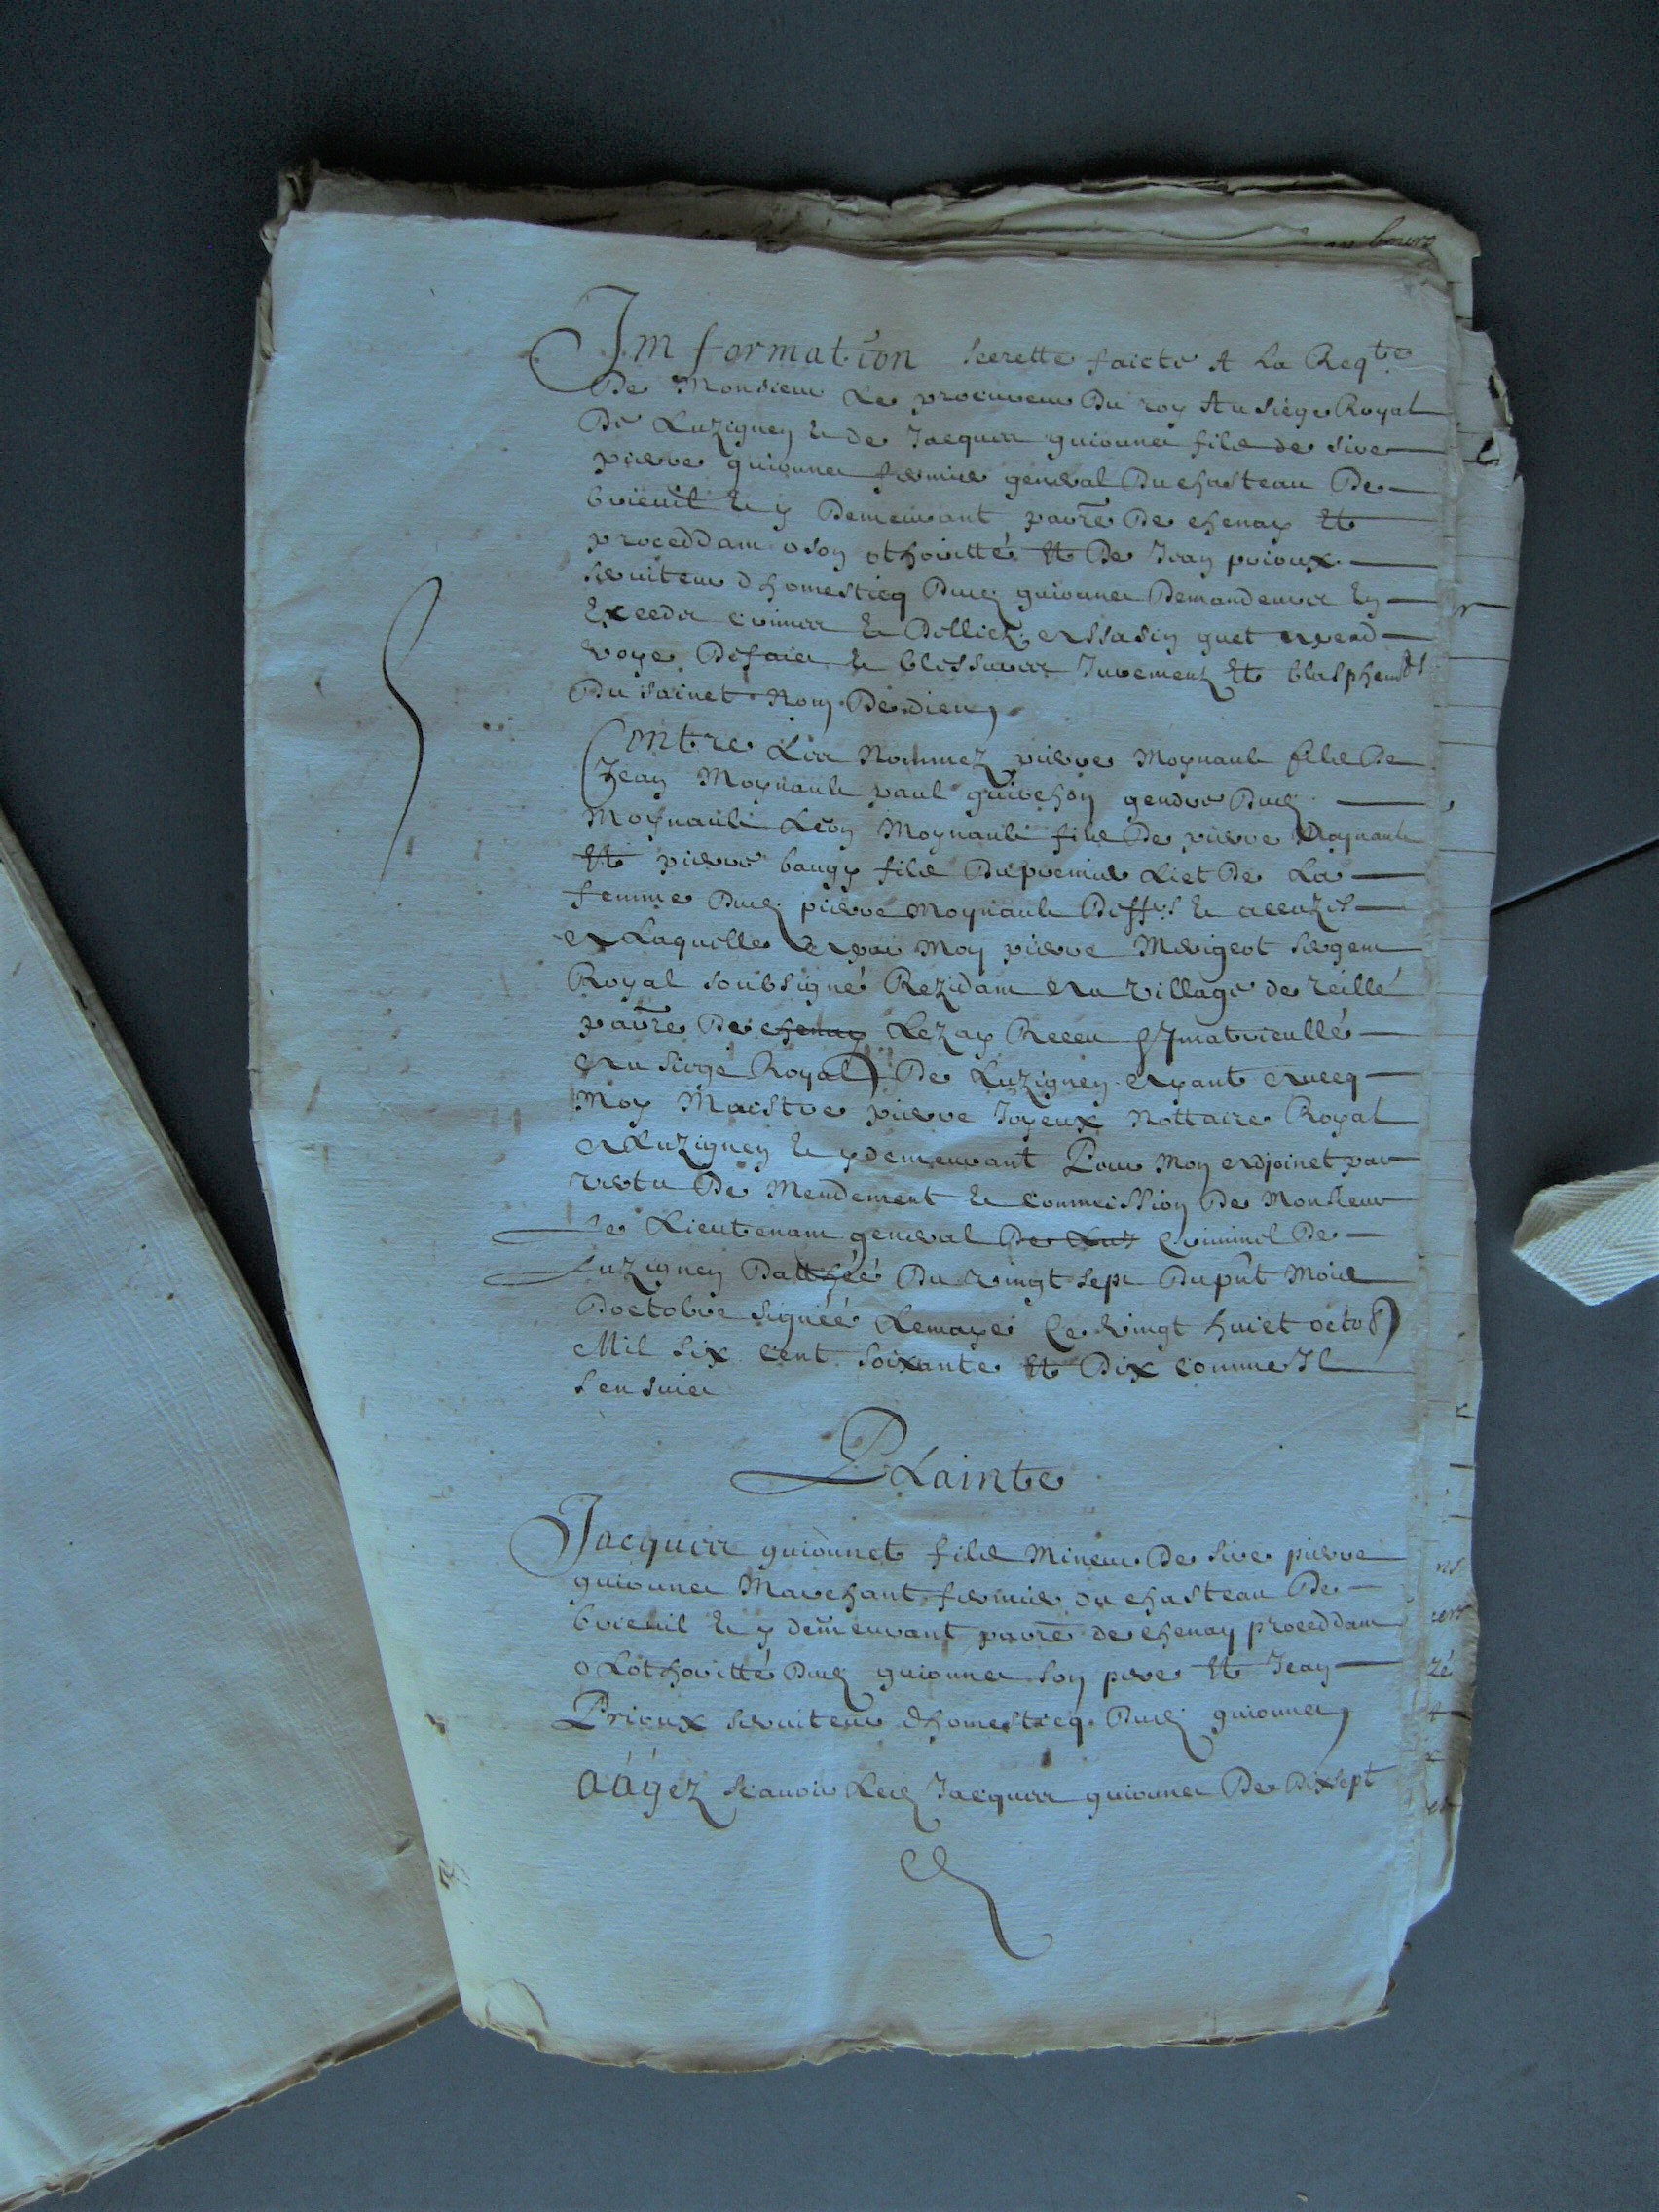 Imformation secrette faicte A La Reqte
De Monsieur Le procureur Du roy Au siège Royal
De Luzignen & de Jacques guionnet fils de sire
pierre guionnet fermier general Du chasteau De
brieuil & y Demeurant parre De chenay Et
proceddam o son othoritté Et De Jean prioux
serviteur dhomesticq Dud guionnet Demandeurs En
Exceds crimes & Dellicz assasin guet apend
voye De faict & blessures Juremenz Et blasphemes
Du sainct Nom De dieu,
Contre Les Nommez pierre Moynault fils De
Jean Moynault paul guichon gendre Dud
Moynault Léon Moynault fils De pierre Moynault
Et pierre baugy fils Du premier Lict De La
femme Dud pierre Moynault Deffrs & accuzés
A Laquelle a par Moy pierre Merigeot sergent
Royal soubsigné Rezidam Au village de reillé
parre De chenay Lezay Receu & Jmatriculle
Au siege Royal De Luzignen ayant avecq
Moy Maistre pierre Joyeux Nottaire Royal
A Luzignen & y demeurant Pour Mon adjoinct par
vertu De Mendement & commission De Monsieur
Le Lieutenam general De Luz Criminel De
Luzignen Datthéé Du vingt sept Du pnt Mois
Doctobre signéé Lemaye Ce vingt huict octob
Mil six cent soixante Et Dix comme Il
sensuict
PLainte
Jacques guionnet fils Mineur De sire pierre
guionnet Marchant fermier du chasteau De
brieuil & y demeurant parre de chenay proceddam
o Lothoritté Dud guionnet son pere Et Jean
Prioux serviteur dhomesticq Dud guionnet,
aâgez scavoir Led Jacques guionnet De Dixsept